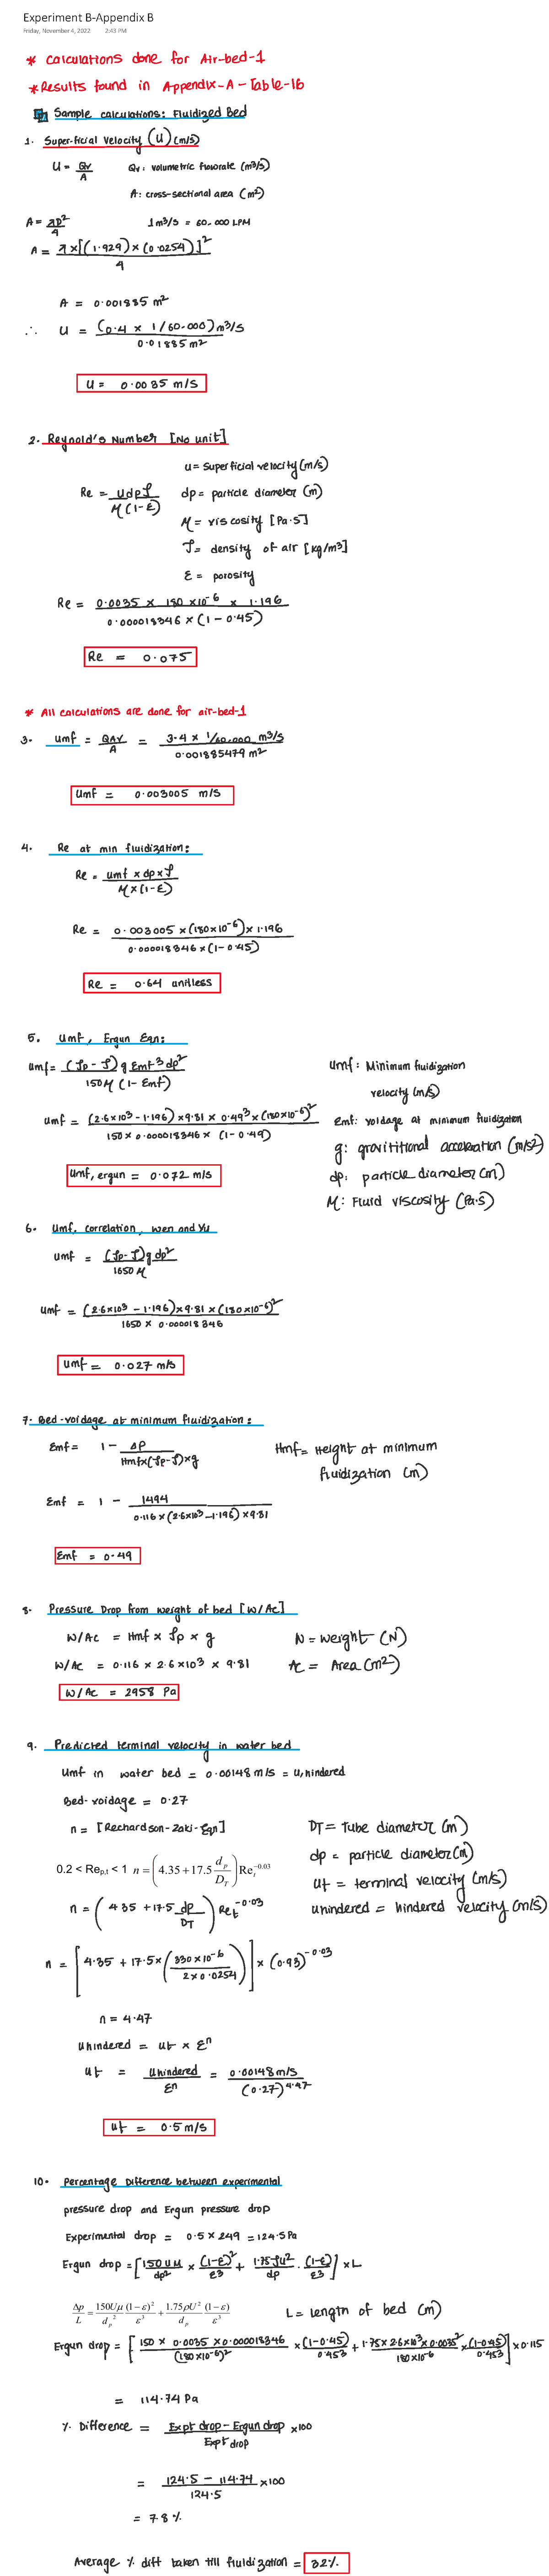 Experiment B-Appendix B
Friday, November 4, 2022 2:43 PM
* Calculations done for Air-bed-1
* Results found in Appendix-A-Table-1b
Sample calculations: Fluidized Bed
1. Super-ficial Velocity (U) (m/s)
U = Qv/A Qv: volumetric flowrate (m³/s)
A: cross-sectional area (m²)
A = πD²/4 1 m³/s = 60,000 LPM
A = π×[(1.929)×(0.0254)]²/4
A = 0.001885 m²
∴ U = (0.4 × 1/60,000) m³/s / 0.01885 m²
U = 0.0035 m/s
2. Reynold's Number [No unit]
u = Superficial velocity (m/s)
Re = Udpρ/μ(1-ε) dp = particle diameter (m)
μ = viscosity [Pa.s]
ρ = density of air [kg/m³]
ε = porosity
Re = 0.0035 × 180 ×10⁻⁶ × 1.196 / 0.000018346 × (1-0.45)
Re = 0.075
* All calculations are done for air-bed-1
3. Umf = QAV/A = 3.4 × 1/60,000 m³/s / 0.001885479 m²
Umf = 0.003005 m/s
4. Re at min fluidization:
Re = umf × dp × ρ / μ × (1-ε)
Re = 0.003005 × (180×10⁻⁶) × 1.196 / 0.000018346 × (1-0.45)
Re = 0.64 unitless
5. Umf, Ergun Eqn:
umf = (ρp - ρ) g εmf³ dp² / 150μ (1-εmf) Umf: Minimum fluidization
velocity (m/s)
Umf = (2.6×10³ - 1.196) × 9.81 × 0.49³ × (180×10⁻⁶)² / 150 × 0.000018346 × (1-0.49) εmf: voidage at minimum fluidization
g: gravititional acceleration (m/s²)
Umf, ergun = 0.072 m/s dp: particle diameter (m)
μ: Fluid viscosity (Pa.s)
6. Umf, correlation, wen and Yu
umf = (ρp-ρ)g dp² / 1650 μ
Umf = (2.6×10³ - 1.196) × 9.81 × (180×10⁻⁶)² / 1650 × 0.000018346
Umf = 0.027 m/s
7. Bed-voidage at minimum fluidization:
εmf = 1 - ΔP / Hmf×(ρp-ρ)×g Hmf = Height at minimum
fluidization (m)
εmf = 1 - 1494 / 0.116 × (2.6×10³ - 1.196) × 9.81
εmf = 0.49
8. Pressure Drop from weight of bed [W/Ac]
W/Ac = Hmf × ρp × g W = weight (N)
W/Ac = 0.116 × 2.6×10³ × 9.81 Ac = Area (m²)
W/Ac = 2958 Pa
9. Predicted terminal velocity in water bed
Umf in water bed = 0.00148 m/s = u,hindered
Bed-voidage = 0.27
n = [Rechardson-Zaki-Eqn] DT = Tube diameter (m)
dp = particle diameter (m)
0.2 < Rep,t < 1 n = (4.35 + 17.5 dp/DT) Ret^-0.03 ut = terminal velocity (m/s)
n = (4.35 + 17.5 dp/DT) Ret^-0.03 uhindered = hindered velocity (m/s)
n = [4.35 + 17.5 × (330×10⁻⁶ / 2×0.0254)] × (0.93)^-0.03
n = 4.47
uhindered = ut × εⁿ
ut = uhindered/εⁿ = 0.00148 m/s / (0.27)^4.47
ut = 0.5 m/s
10. Percentage Difference between experimental
pressure drop and Ergun pressure drop
Experimental drop = 0.5 × 249 = 124.5 Pa
Ergun drop = [150Uμ/dp² × (1-ε)²/ε³ + 1.75ρU²/dp · (1-ε)/ε³] × L
Δp/L = 150Uμ/dp² (1-ε)²/ε³ + 1.75ρU²/dp (1-ε)/ε³ L = length of bed (m)
Ergun drop = [150 × 0.0035 × 0.000018346 / (180×10⁻⁶)² × (1-0.45)/0.45³ + 1.75×2.6×10³×0.0035² / 180×10⁻⁶ × (1-0.45)/0.45³] × 0.115
= 114.74 Pa
% Difference = Expt drop - Ergun drop / Expt drop × 100
= 124.5 - 114.74 / 124.5 × 100
= 7.8 %
Average % diff taken till fluidization = 32%